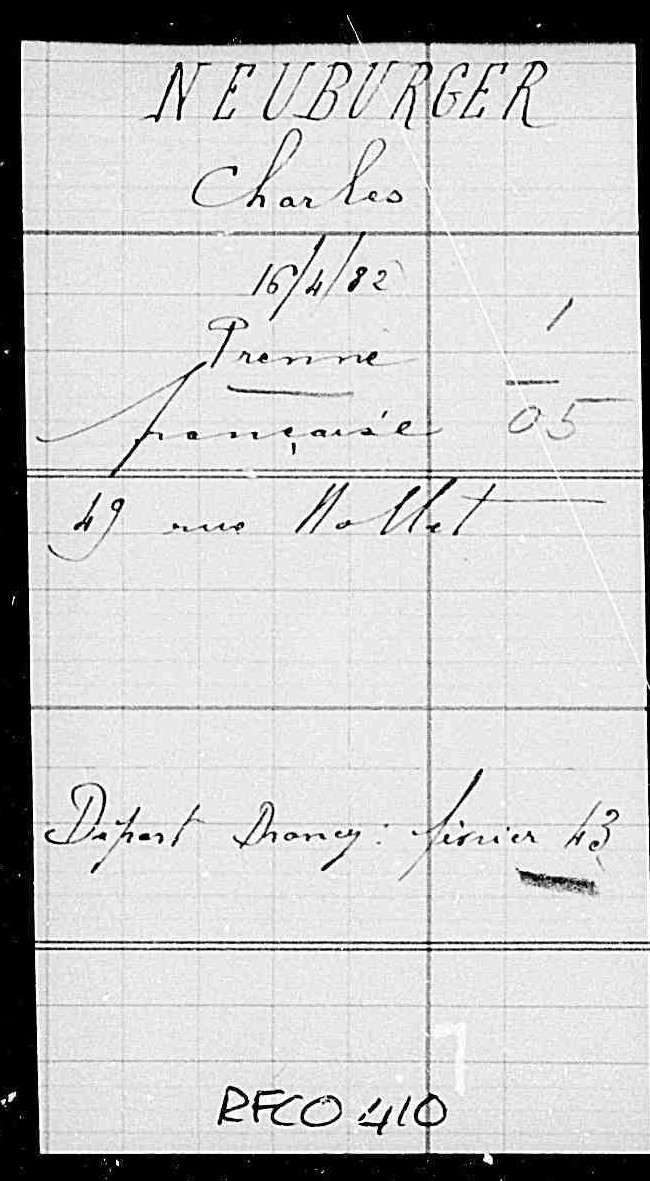 NEUBURGER
Charles
16/4/82
/
Vienne
française 05
49 rue Nollet
Départ Drancy : février 43
7
RFCO 410